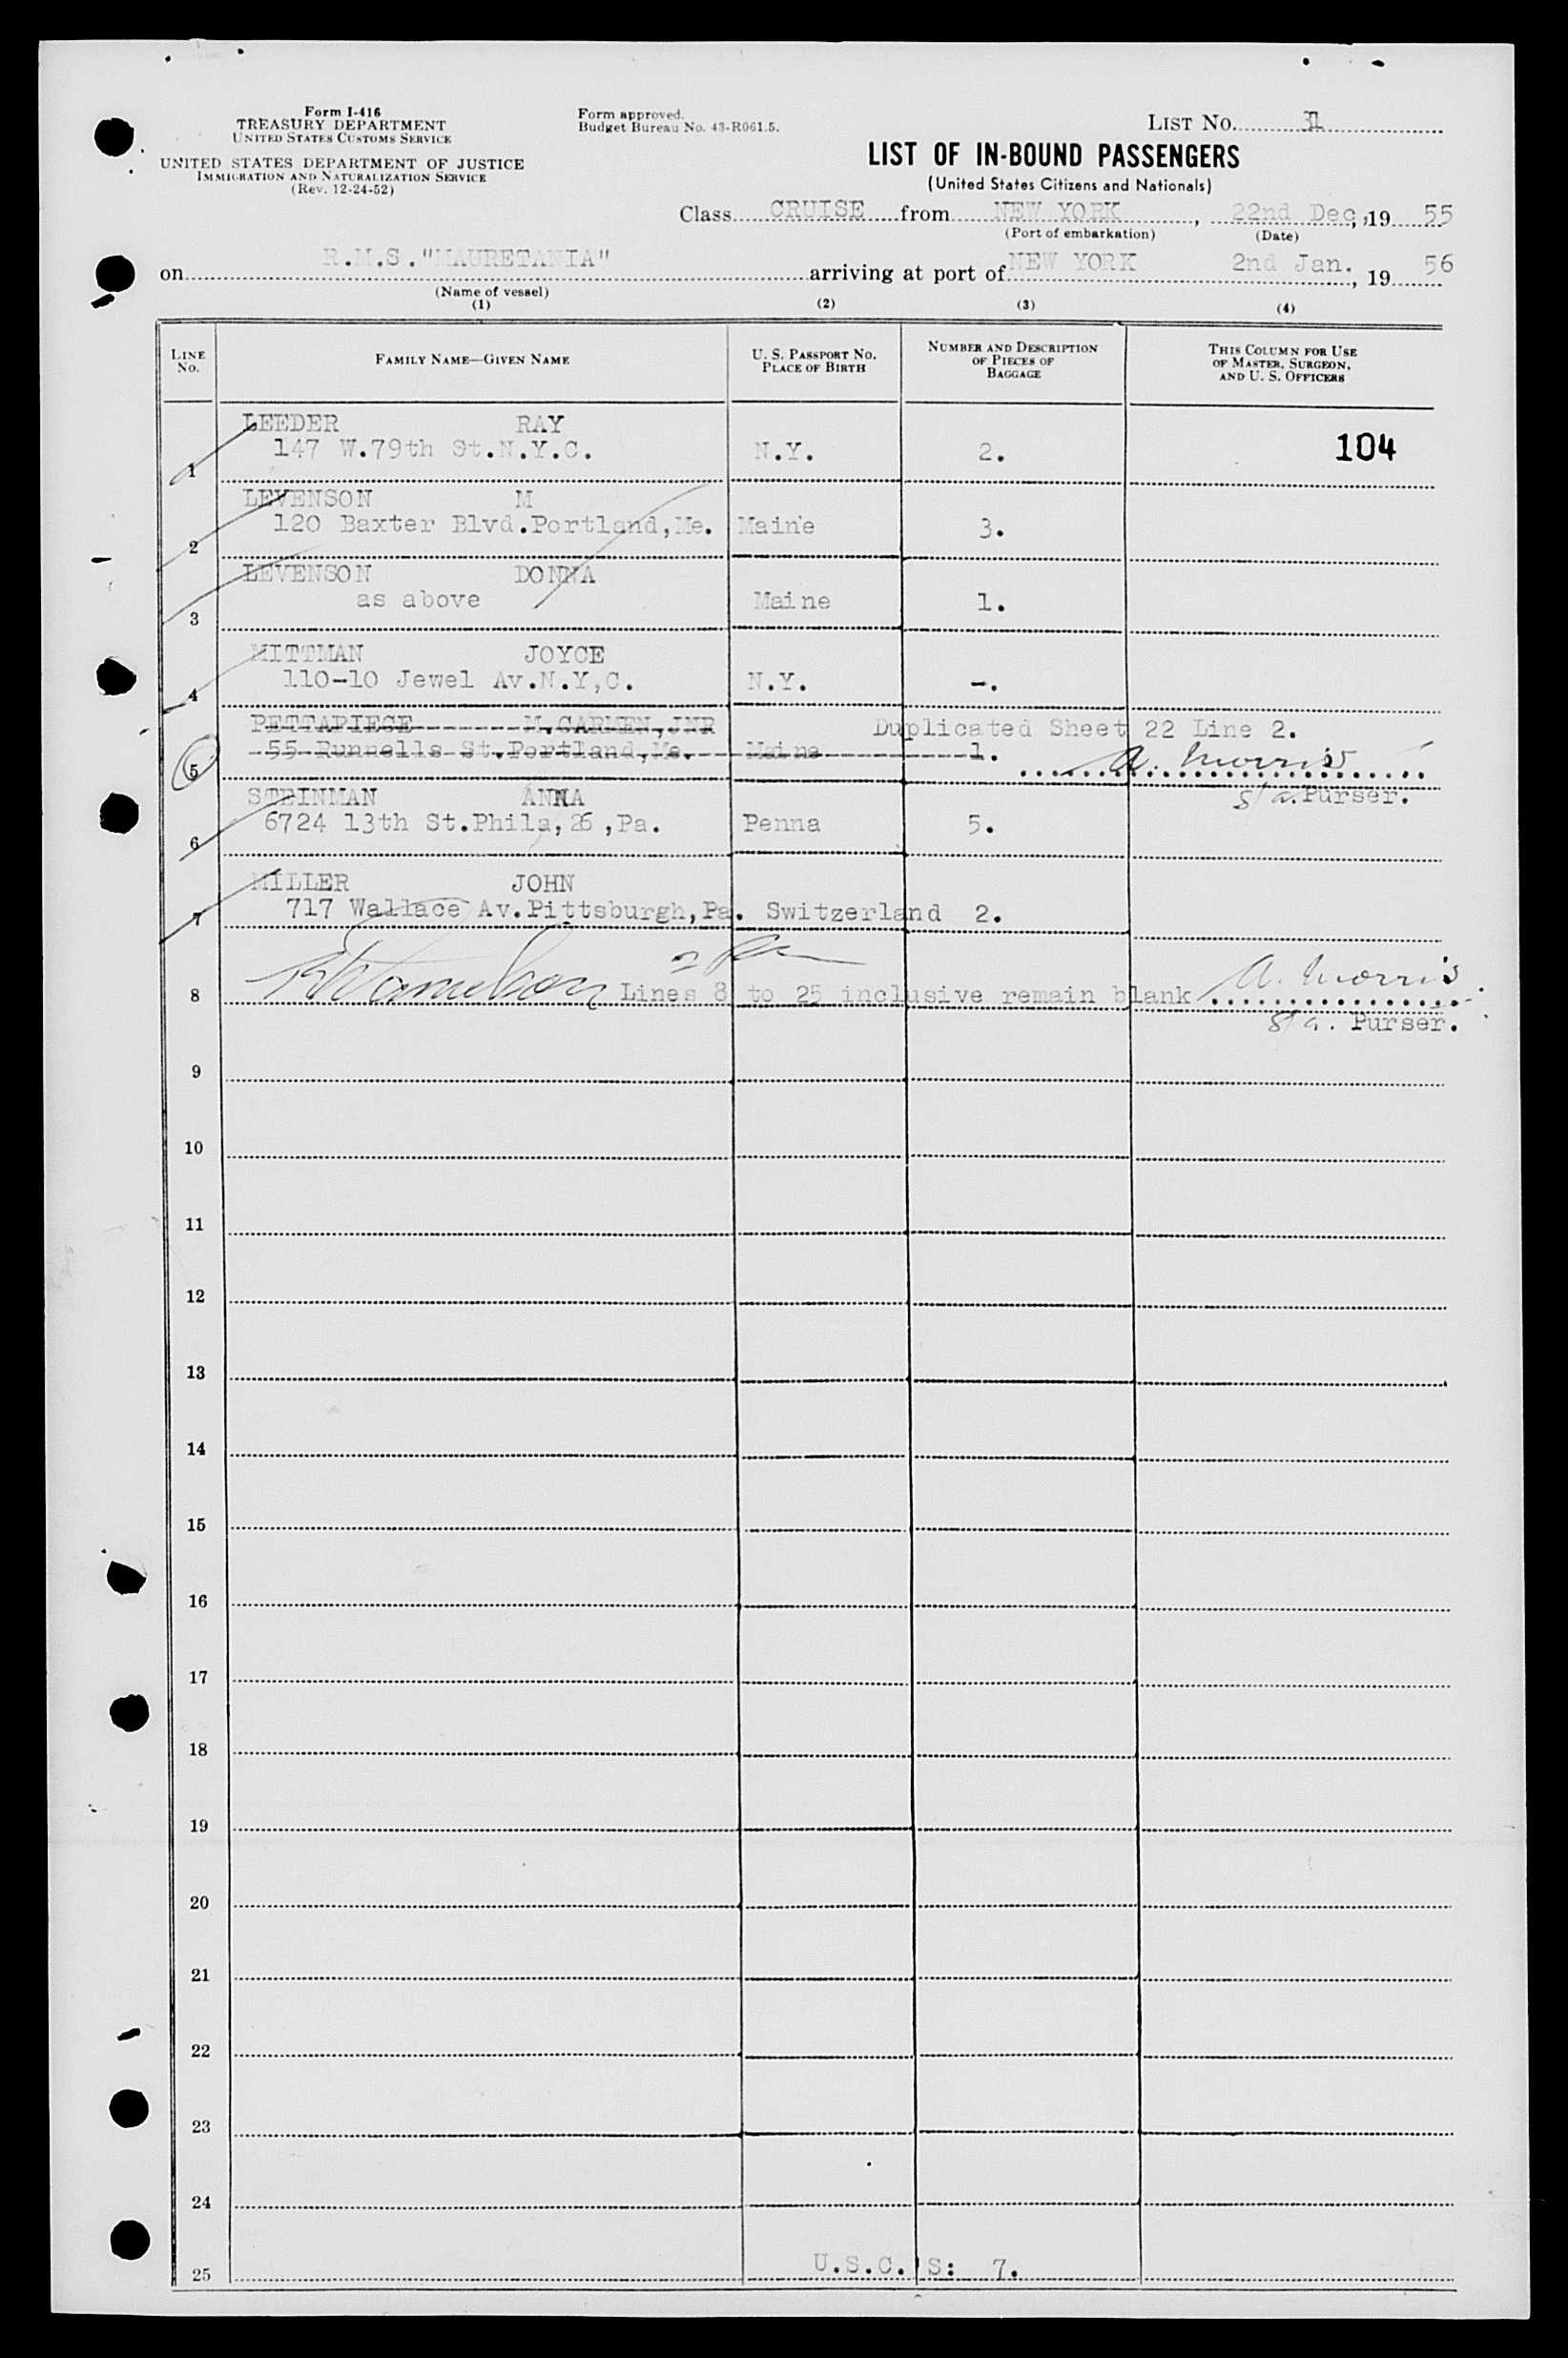 Form I-416
TREASURY DEPARTMENT
UNITED STATES CUSTOMS SERVICE
UNITED STATES DEPARTMENT OF JUSTICE
IMMIGRATION AND NATURALIZATION SERVICE
(Rev. 12-24-52)
Form approved.
Budget Bureau No. 43-R061.5.
LIST NO.
LIST OF IN-BOUND PASSENGERS
(United States Citizens and Nationals)
Class CRUISE from NEW YORK, 22nd Dec, 19 55
(Port of embarkation) (Date)
on R.M.S."MAURETANIA" arriving at port of NEW YORK 2nd Jan., 19 56
(Name of vessel)
(1) (2) (3) (4)
LINE No. FAMILY NAME—GIVEN NAME U. S. PASSPORT NO. PLACE OF BIRTH NUMBER AND DESCRIPTION OF PIECES OF BAGGAGE THIS COLUMN FOR USE OF MASTER, SURGEON, AND U. S. OFFICERS
LEEDER RAY
1 147 W.79th St.N.Y.C. N.Y. 2. 104
LEVENSON M
2 120 Baxter Blvd.Portland,Me. Maine 3.
LEVENSON DONNA
3 as above Maine 1.
MITTMAN JOYCE
4 110-10 Jewel Av.N.Y,C. N.Y. -.
PETTAPIECE M.CARMEN,JNR Duplicated Sheet 22 Line 2.
5 55 Runnells St.Portland,Me. Maine 1. A. Morris
S/a. Purser.
STEINMAN ANNA
6 6724 13th St.Phila,26,Pa. Penna 5.
MILLER JOHN
7 717 Wallace Av.Pittsburgh,Pa. Switzerland 2.
8 Lines 8 to 25 inclusive remain blank A. Morris
S/a. Purser.
9
10
11
12
13
14
15
16
17
18
19
20
21
22
23
24
25 U.S.C.'S: 7.